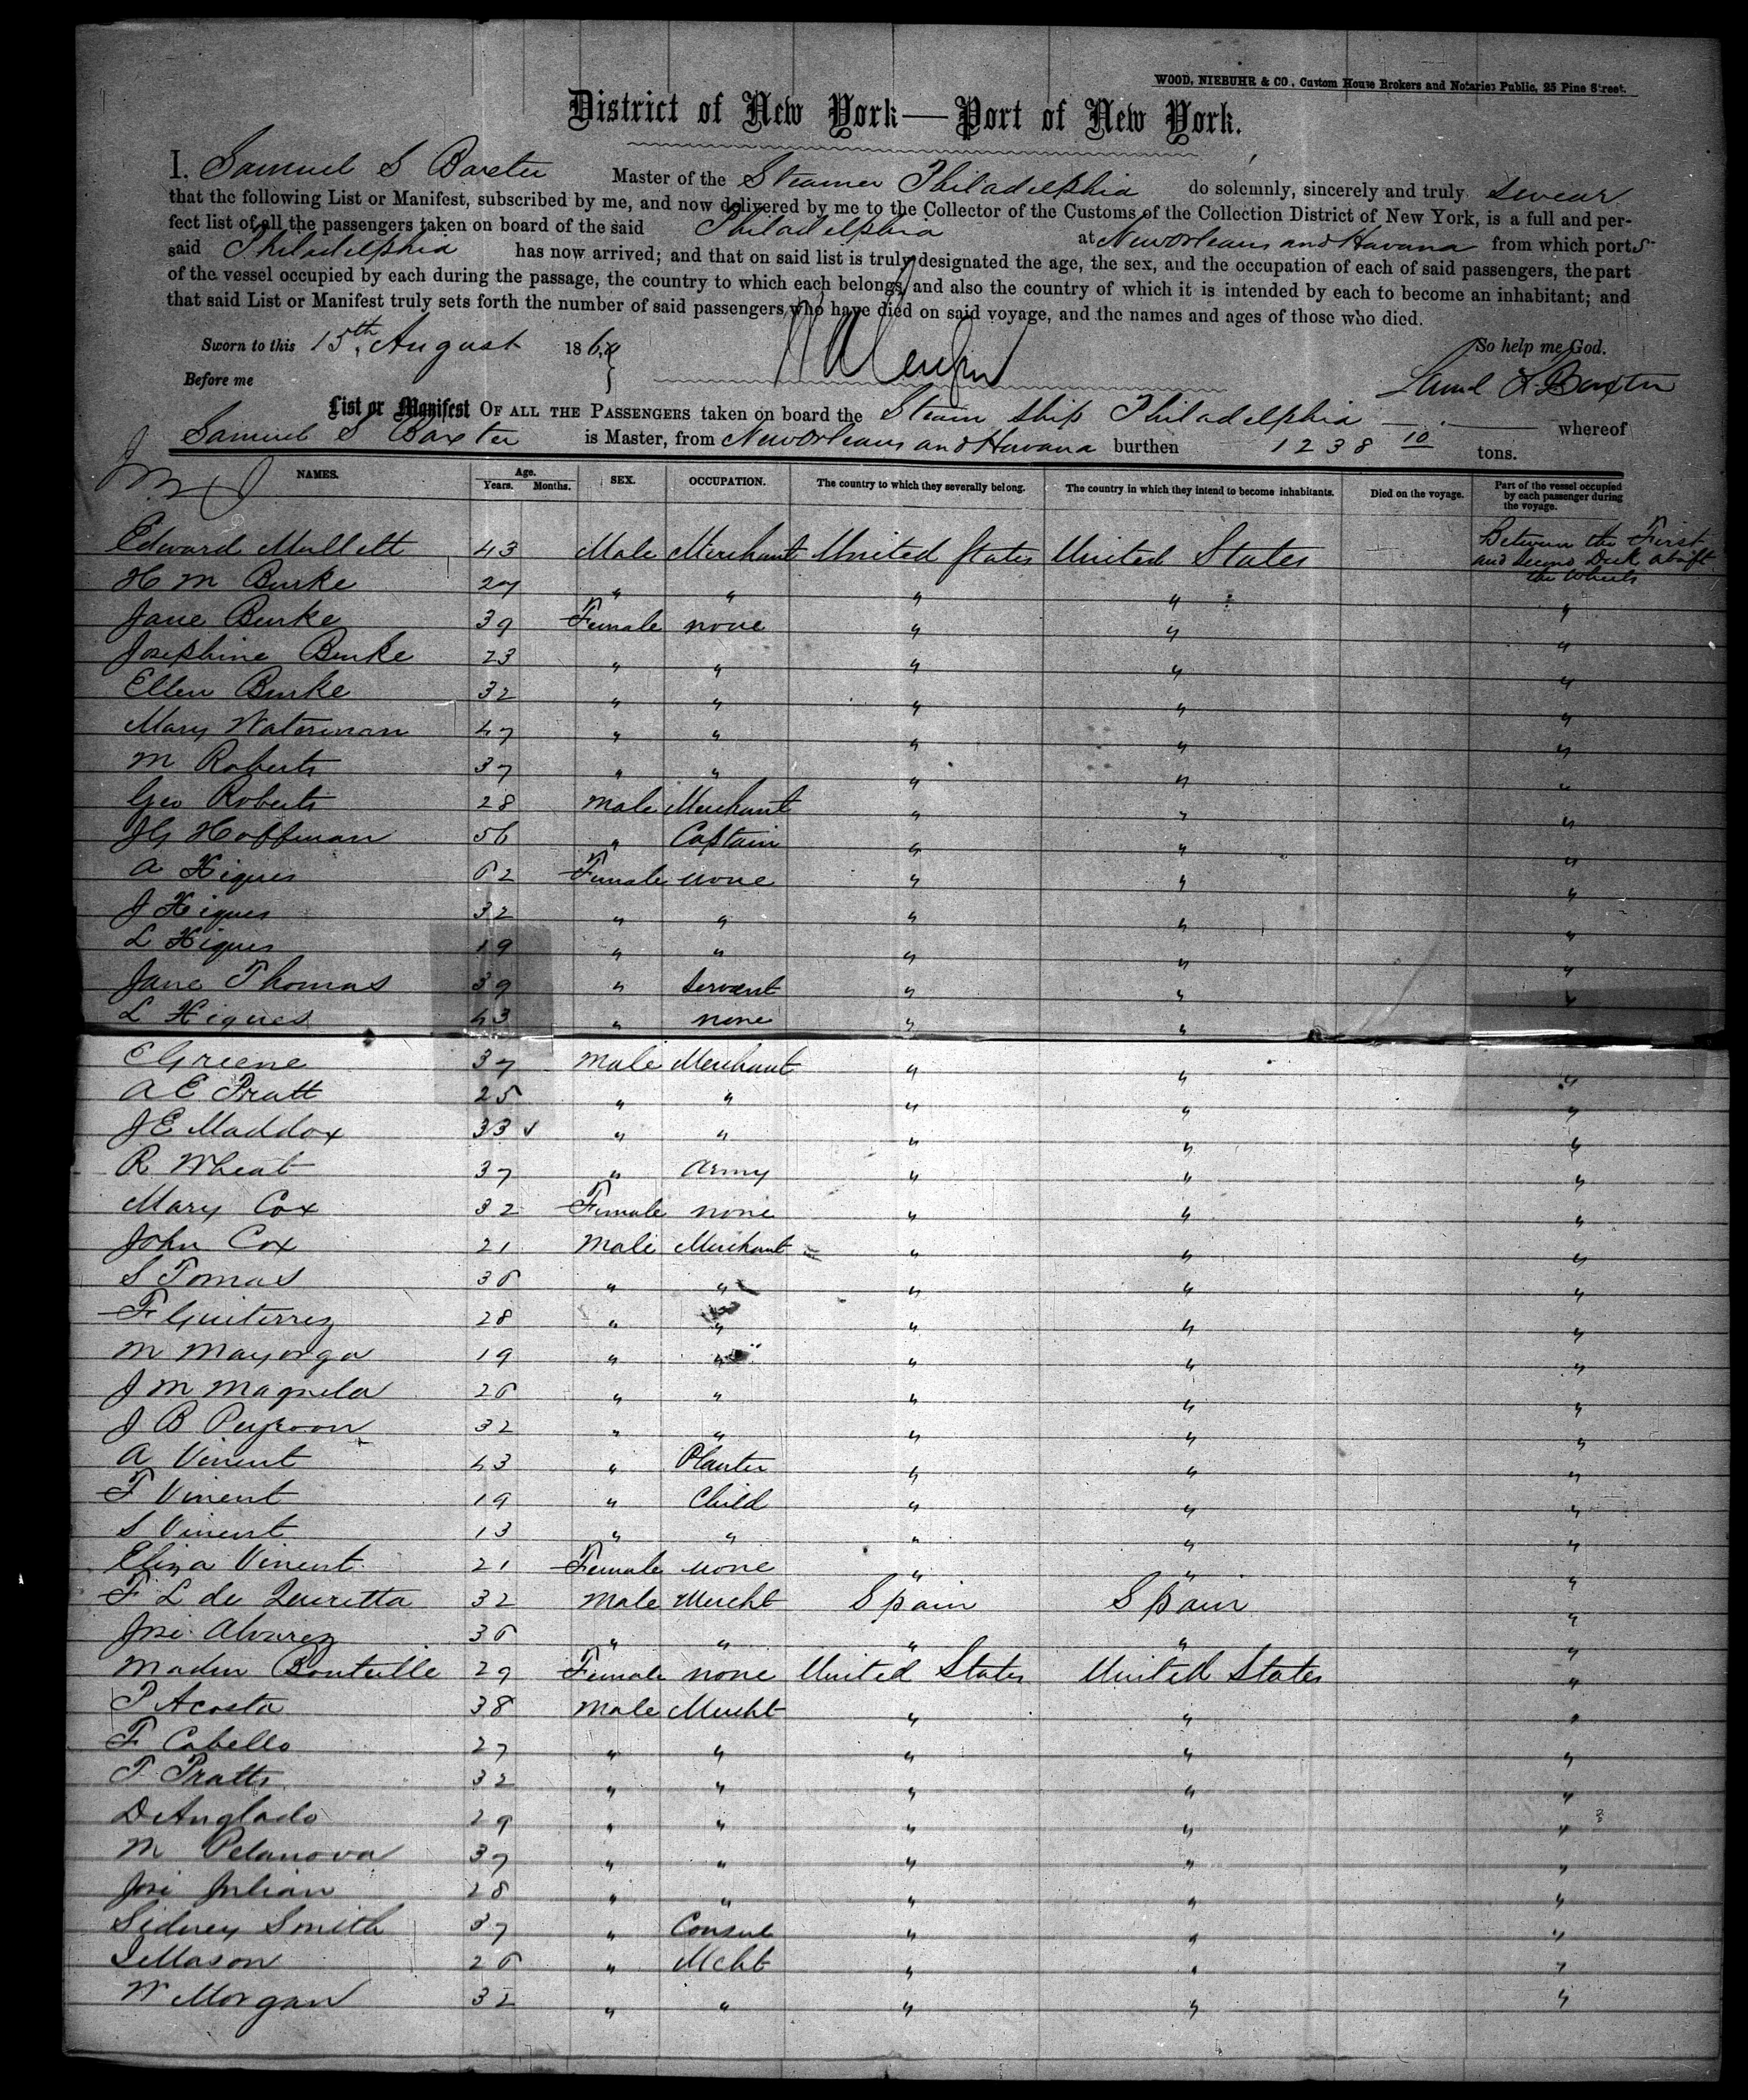 WOOD, NIEBUHR & CO., Custom House Brokers and Notaries Public, 25 Pine Street.
District of New York—Port of New York.
I, Samuel S Baxter Master of the Steamer Philadelphia do solemnly, sincerely and truly swear
that the following List or Manifest, subscribed by me, and now delivered by me to the Collector of the Customs of the Collection District of New York, is a full and per-
fect list of all the passengers taken on board of the said Philadelphia at New Orleans and Havana from which ports
said Philadelphia has now arrived; and that on said list is truly designated the age, the sex, and the occupation of each of said passengers, the part
of the vessel occupied by each during the passage, the country to which each belongs, and also the country of which it is intended by each to become an inhabitant; and
that said List or Manifest truly sets forth the number of said passengers who have died on said voyage, and the names and ages of those who died.
Sworn to this 15th August 186 So help me God.
Before me Saml S. Baxter
List or Manifest OF ALL THE PASSENGERS taken on board the Steam ship Philadelphia whereof
Samuel S Baxter is Master, from New Orleans and Havana burthen 1238 10 tons.
NAMES. Age. Years. Months. SEX. OCCUPATION. The country to which they severally belong. The country in which they intend to become inhabitants. Died on the voyage. Part of the vessel occupied by each passenger during the voyage.
Edward Mullett 43 Male Merchant United States United States Between the First and Second Deck abaft the wheels
H M Burke 27 " " " " "
Jane Burke 39 Female none " " "
Josephine Burke 23 " " " " "
Ellen Burke 32 " " " " "
Mary Waterman 47 " " " " "
M Roberts 37 " " " " "
Geo Roberts 28 Male Merchant " " "
J G Hoffman 56 " Captain " " "
A Hiques 62 Female none " " "
J Hiques 32 " " " " "
L Hiques 19 " " " " "
Jane Thomas 39 " Servant " " "
L Hiques 43 " none " " "
E Greene 37 Male Merchant " " "
A E Pratt 25 " " " " "
J E Maddox 33 " " " " "
R Wheat 37 " Army " " "
Mary Cox 32 Female none " " "
John Cox 21 Male Merchant " " "
S Tomas 36 " " " " "
F Guiterrez 28 " " " " "
M Mayorga 19 " " " " "
J M 26 " " " " "
J B 32 " " " " "
A Vincent 43 " Planter " " "
F Vincent 19 " Child " " "
S Vincent 13 " " " " "
Eliza Vincent 21 Female none " " "
F L de 32 Male Mercht Spain Spain "
Jose Alvarez 36 " " " " "
Bouteille 29 Female none United States United States "
P Acosta 38 Male Mercht " " "
F Cabello 27 " " " " "
P Pratts 32 " " " " "
D Anglado 29 " " " " "
M Pelanova 37 " " " " "
Jose Julian 28 " " " " "
Sidney Smith 37 " Consul " " "
Mason 26 " Mcht " " "
W Morgan 32 " " " " "